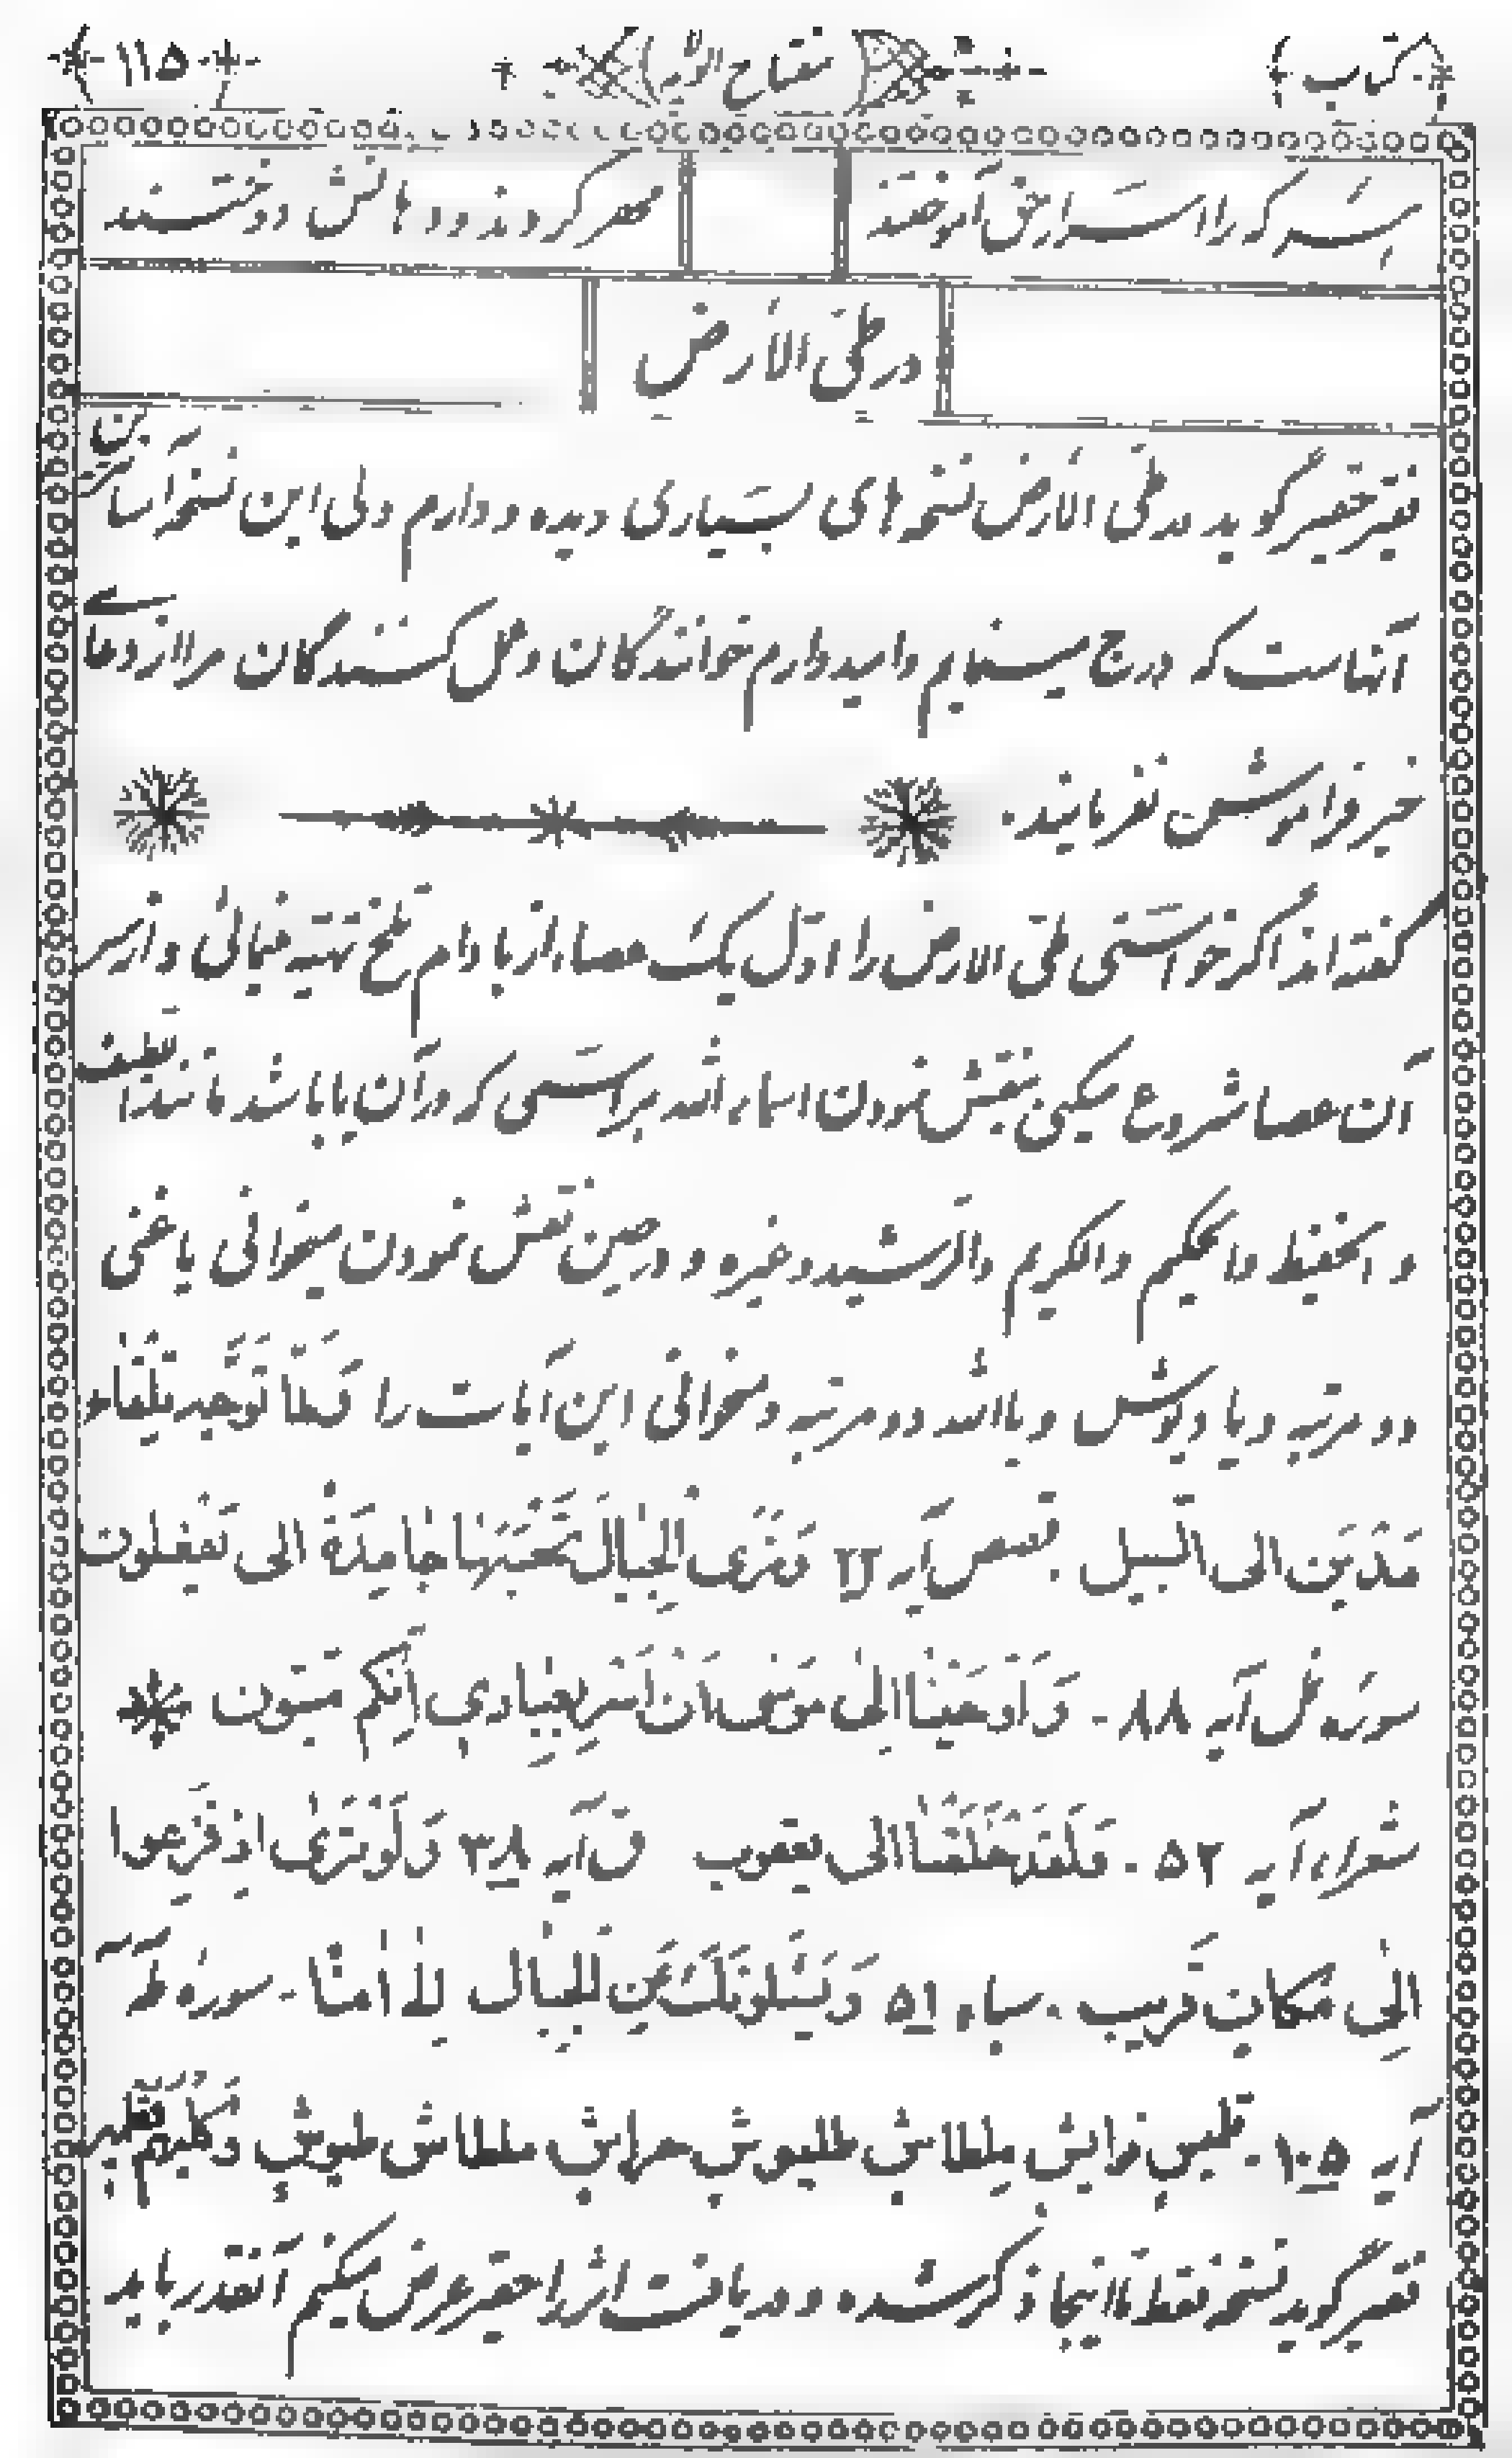 کتاب مفتاح ۱۱۵
هر که را اسرار حق آموختند مهر کردند و دهانش دوختند
در طی الأرض
فقیر حقیر گوید در طی الارض نسخه‌های بسیاری دیده و دارم ولی این نسخه آسانترین
آنهاست که درج مینمایم و امیدوارم خوانندگان و عمل کنندگان مرا از دعای
خیر فراموش نفرمایند.
گفته‌اند اگر خواستی طی الارض را اول یک عصا، از بادام تلخ تهیه میمائی و از سر
آن عصا شروع میکنی بنقش نمودن اسماء الله هر اسمی که در آن یا باشد مانند اللطیف
و الحفیظ والحکیم والکریم والرشید وغیره و در حین نقش نمودن میخوانی یا غنی
دو مرتبه و یا دیوش و یا الله دو مرتبه و میخوانی این آیات را وَلَمّا تَوَجَّهَ تِلْقاءَ
مَدْیَن الی السبیل. قصص آیه ۲۲ وَتَرَی الْجِبالَ تَحْسَبُها جامِدَةً الی تَفْعَلون
سوره نمل آیه ۸۸ - وَ اَوْحَیْنا اِلی مُوسٰی اَنْ اَسْرِ بِعِبادِی اِنَّکُم متبعون
شعراء، آیه ۵۲ - وَلَقَد خَلَقْنَا الی یعقوب ق آیه ۳۸ وَلَوْ تَرٰی اِذ فَزِعوا
اِلی مَکان قَریب. سباء ۵۱ وَیَسْئَلونَکَ عَنِ الْجِبال لا اَمْتًا - سوره طه
آیه ۱۰۵ - طلطاش طلیوش مهراش سلطاش طیوش
فقیر گوید نسخه فقط تا اینجا ذکر شده و دریافت اثر را حقیر عرض میکنم آنقدر باید